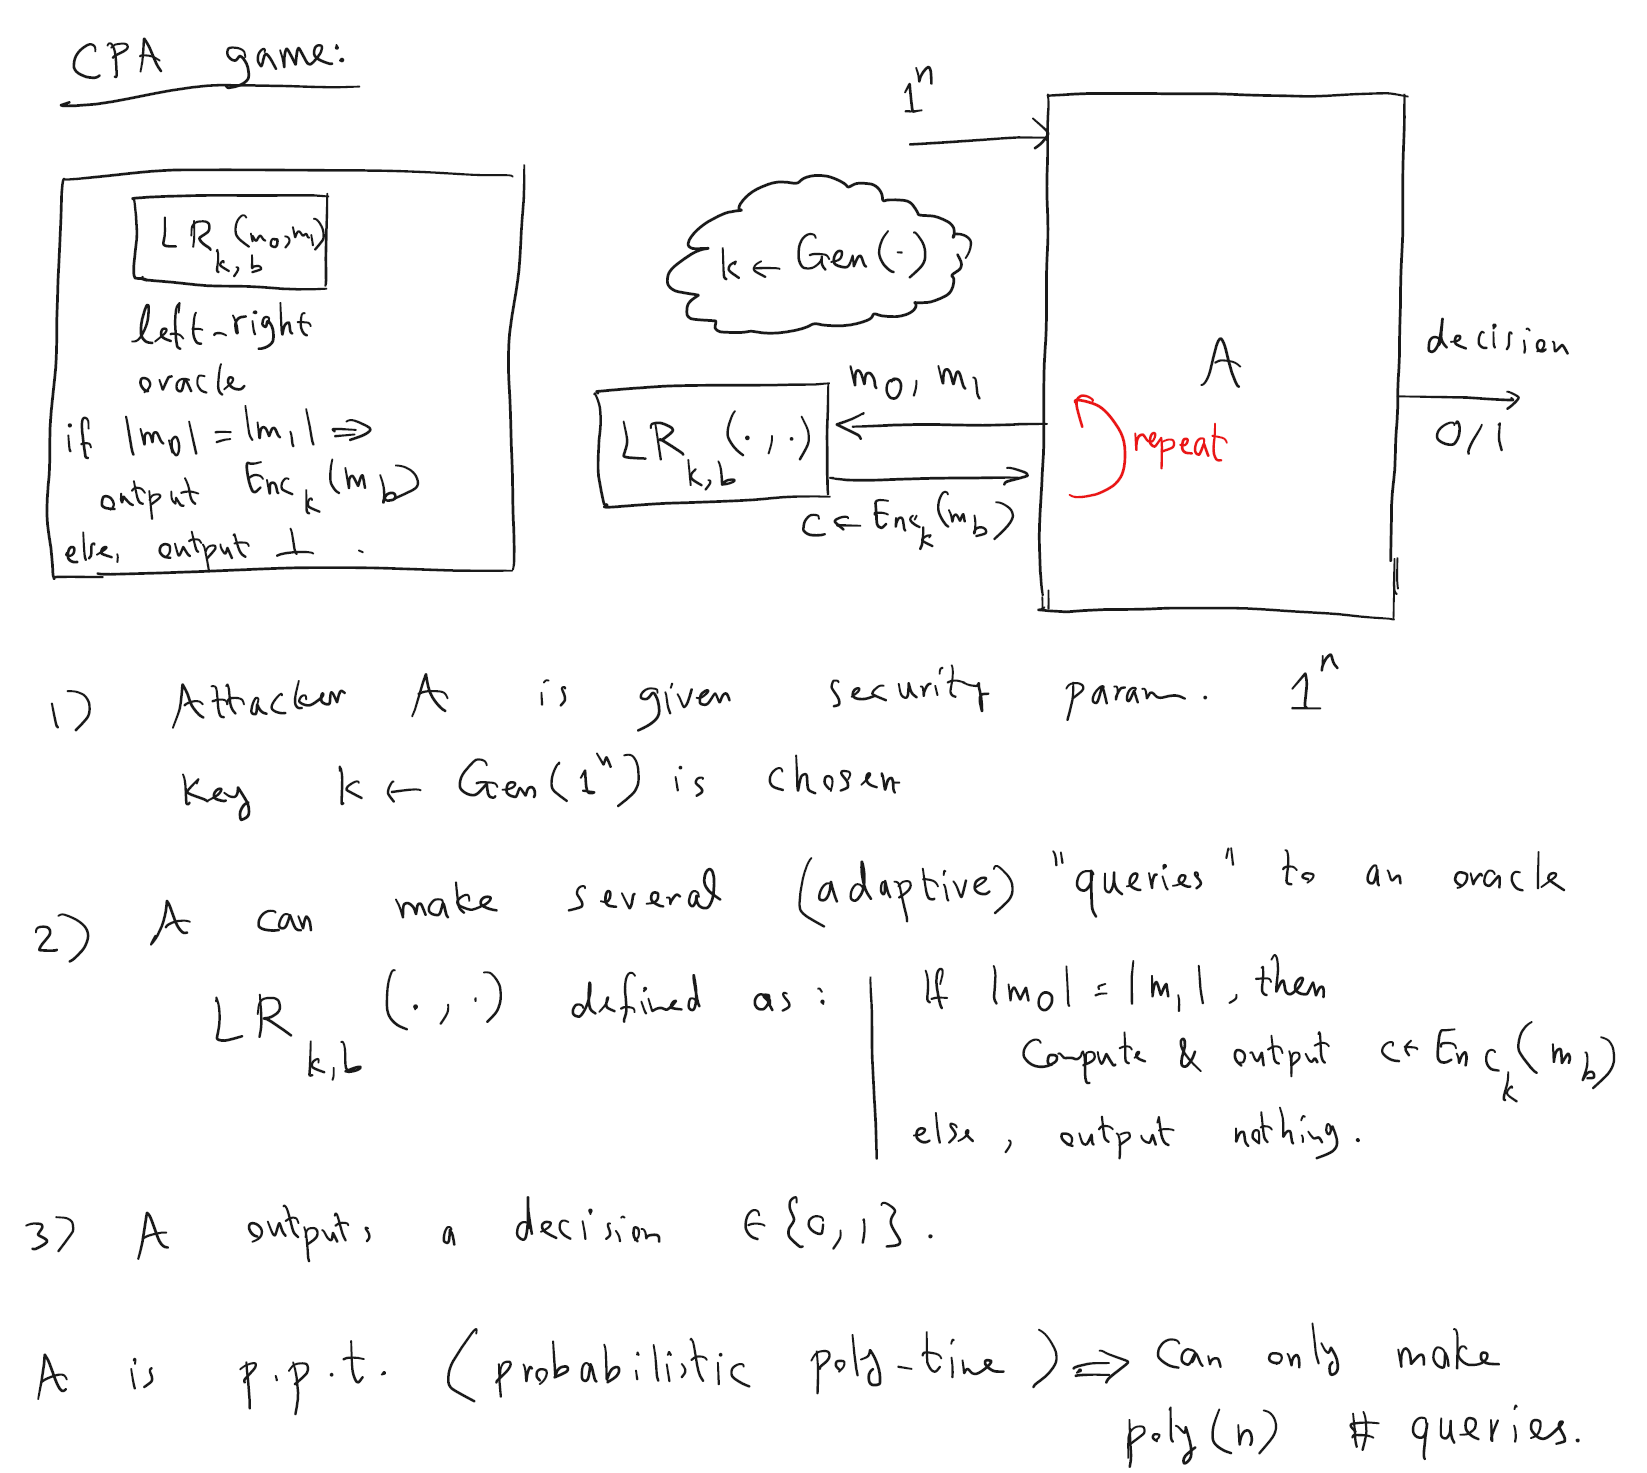 CPA game:
LR_{k,b}(m0,m1)
left-right
oracle
if |m0| = |m1| ⇒
output Enc_k(m_b)
else, output ⊥ .
1^n
k ← Gen(·)
m0, m1
LR_{k,b}(·,·)
c ← Enc_k(m_b)
A
repeat
decision
0/1
1) Attacker A is given security param. 1^n
key k ← Gen(1^n) is chosen
2) A can make several (adaptive) "queries" to an oracle
LR_{k,b}(·,·) defined as:
If |m0| = |m1|, then
Compute & output c ← Enc_k(m_b)
else, output nothing.
3) A outputs a decision ∈ {0,1}.
A is p.p.t. (probabilistic poly-time) ⇒ can only make
poly(n) # queries.